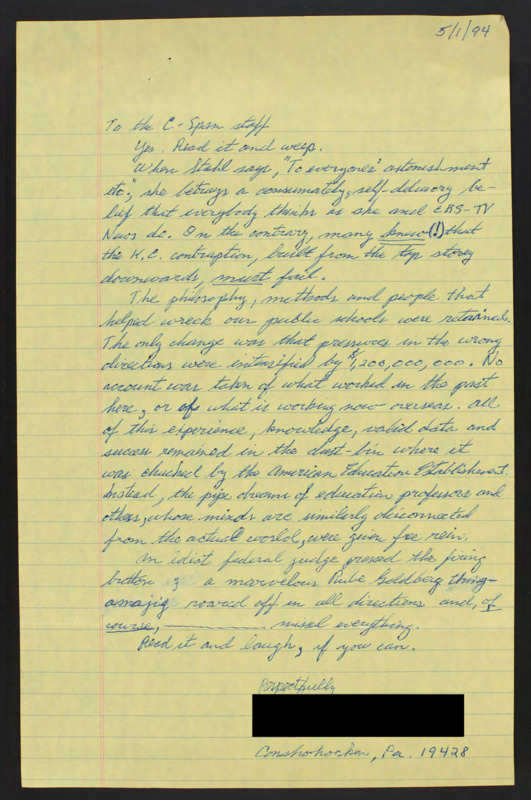 5/1/94
To the C-Span staff
Yes. Read it and weep.
When Stahl says, "To everyones' astonishment
etc.", she betrays a consumately, self-delusory be-
lief that everybody thinks as she and CBS-TV
News do. On the contrary, many knew (!) that
the K.C. contraption, built from the top storey
downwards, must fail.
The philosophy, methods and people that
helped wreck our public schools were retained.
The only change was that pressures in the wrong
directions were intensified by $1,200,000,000. No
account was taken of what worked in the past
here, or of what is working now overseas. All
of this experience, knowledge, valid data and
success remained in the dust-bin where it
was chucked by the American Education Establishment.
Instead, the pipe dreams of education professors and
others, whose minds are similarly disconnected
from the actual world, were given free rein.
An idiot federal judge pressed the firing
button & a marvelous Rube Goldberg thing-
amajig roared off in all directions and, of
course, missed everything.
Read it and laugh, if you can.
Respectfully
Conshohocken, Pa. 19428